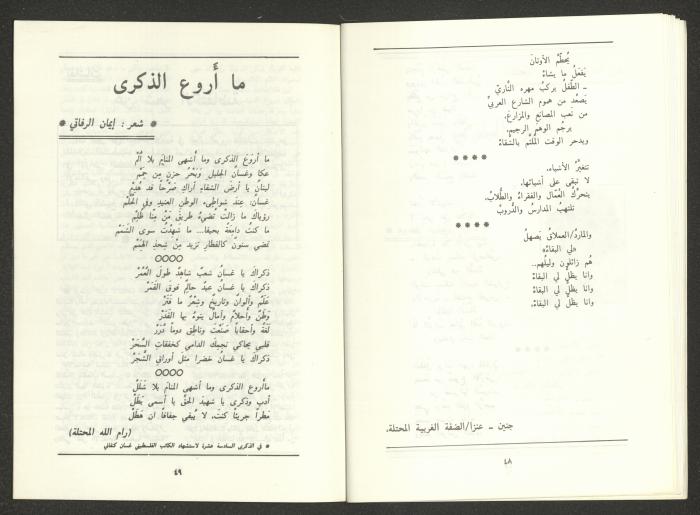 يُحطّمُ الأوثانَ
يَفعَلُ ما يشاءُ
ـ الطّفلُ يركبُ مهره النّاريّ
يَصعُد من هموم الشارع العربيّ
من تَعبِ المصانعِ والمزارعِ.
يرجُم الوهمَ الرجيمَ.
ويدحر الوقت المُلثّم بالشقاءْ
****
تتغيّرُ الأشياء.
لا تبقى على أشيائها.
يتحرّكُ العُمّال والفقراءُ والطُّلابُ.
تلتهبُ المدارسُ والدُّروبْ
****
والماردُ/العملاقُ يَصهلُ
«لي البقاءُ»
هُم زائلون وليلُهم..
وانا يظلّ لي البقاءْ
وانا يظلّ لي البقاءْ
وانا يظلّ لي البقاءْ.
جنين ـ عنزا/الضفة الغربية المحتلة.
٤٨
ما أَروع الذكرى
* شعر : إيمان الرفاتي *
ما أروعَ الذكرى وما أشهى المنامَ بلا ألَمْ
عكا وغسانُ الجليل وَبَحْرُ حزنٍ مِن حِمَمْ
لبنانُ يا أرضَ الشقاءِ أراكِ صَرْحاً قد هُدِمْ
غسانُ، عِندَ شواطىءِ الوطنِ العنيدِ وفي الحُلُمْ
رؤياكَ ما زالتْ تُضيءُ طريقَ مَنْ مِنّا ظُلِمْ
ما كنتُ دامِعَةً بحيفا... ما شهِدْتُ سوى الشَمَمْ
تمضي سنونُ كالقطارِ تزيد مِنْ شحذِ الهِمَمْ
○○○○
ذكراكَ يا غسان شعبٌ شاهِدٌ طولَ العُمُرْ
ذكراكَ يا غسان عيدٌ حالِمٌ فوق القَمَرْ
عَلَمٌ وألوانٌ وتاريخٌ وشِعْرٌ ما فَتَرْ
وَطَنٌ وأحلامٌ وآمالٌ ينوءُ بها القَدَرْ
لُغَةٌ وأحقاباً صَنَعْتَ وناطِقٍ دوماً دُرَرْ
قلبي يحاكي نجمك الدامي كخفقاتِ السَّحَرْ
ذكراكَ يا غسانُ خضرا مثلَ أوراقِ الشَّجَرْ
○○○○
ماأروع الذكرى وما أشهى المنامَ بلا شَلَلْ
أدبٌ وذكرى يا شهيدَ الحقِّ يا أسمى بَطَلْ
مَطراً جريئاً كنتَ. لا يُبقي جفافاً ان هَطَلْ
(رام الله المحتلة)
* في الذكرى السادسة عشرة لاستشهاد الكاتب الفلسطيني غسان كنفاني
٤٩